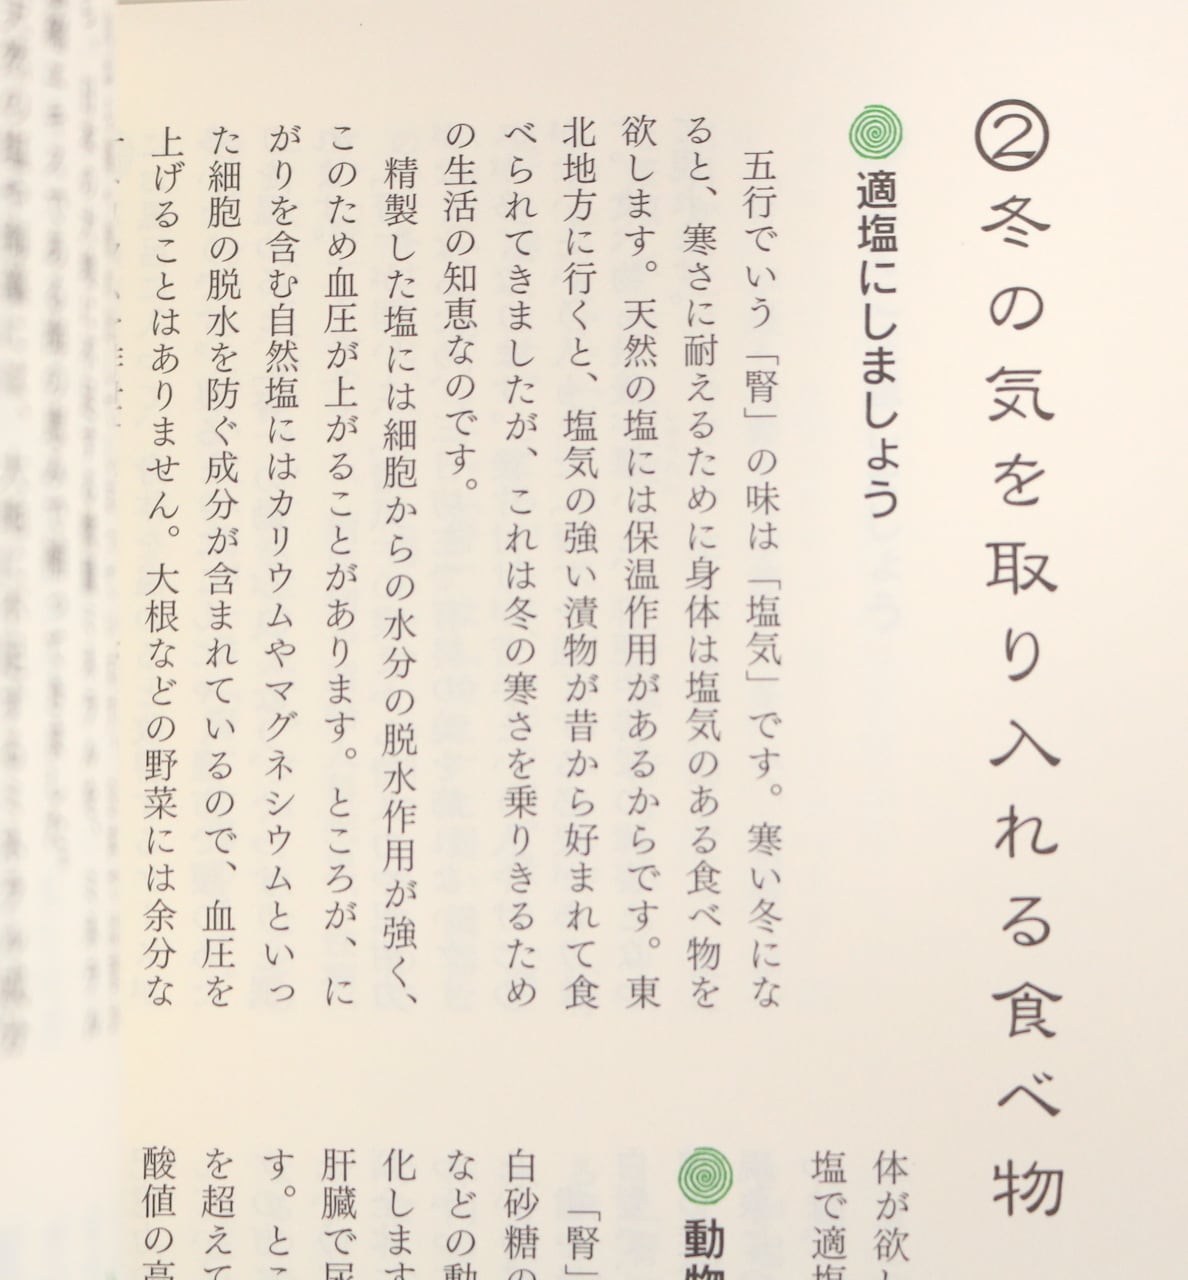 ②冬の気を取り入れる食べ物
適塩にしましょう
五行でいう「腎」の味は「塩気」です。寒い冬にな
ると、寒さに耐えるために身体は塩気のある食べ物を
欲します。天然の塩には保温作用があるからです。東
北地方に行くと、塩気の強い漬物が昔から好まれて食
べられてきましたが、これは冬の寒さを乗りきるため
の生活の知恵なのです。
精製した塩には細胞からの水分の脱水作用が強く、
このため血圧が上がることがあります。ところが、に
がりを含む自然塩にはカリウムやマグネシウムといっ
た細胞の脱水を防ぐ成分が含まれているので、血圧を
上げることはありません。大根などの野菜には余分な
体が欲し
塩で適塩
動物
「腎」
白砂糖の
などの動
化します
肝臓で尿
す。とこ
を超えて
酸値の高